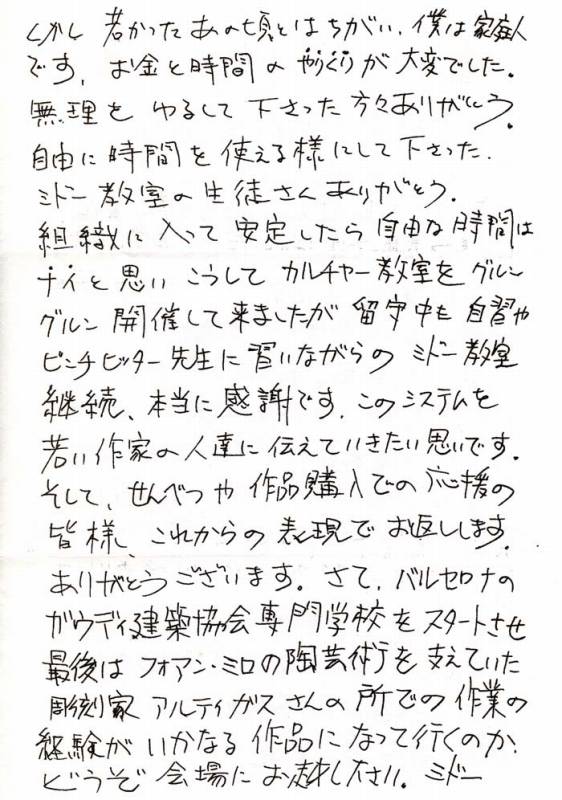 しかし 若かったあの頃とはちがい、僕は家庭人
です。お金と時間のやりくりが大変でした。
無理をゆるして下さった方々ありがとう。
自由に時間を使える様にして下さった、
ミドー教室の生徒さんありがとう。
組織に入って安定したら自由な時間は
ナイと思いこうしてカルチャー教室をグルン
グルン開催して来ましたが留守中も自習や
ピンチヒッター先生に習いながらのミドー教室
継続、本当に感謝です。このシステムを
若い作家の人達に伝えていきたい思いです。
そして、せんべつや作品購入での応援の
皆様、これからの表現でお返しします。
ありがとうございます。さて、バルセロナの
ガウディ建築協会専門学校をスタートさせ
最後はフォアン・ミロの陶芸術を支えていた
彫刻家アルティガスさんの所での作業の
経験がいかなる作品になって行くのか、
どうぞ会場にお越し下さい。ミドー